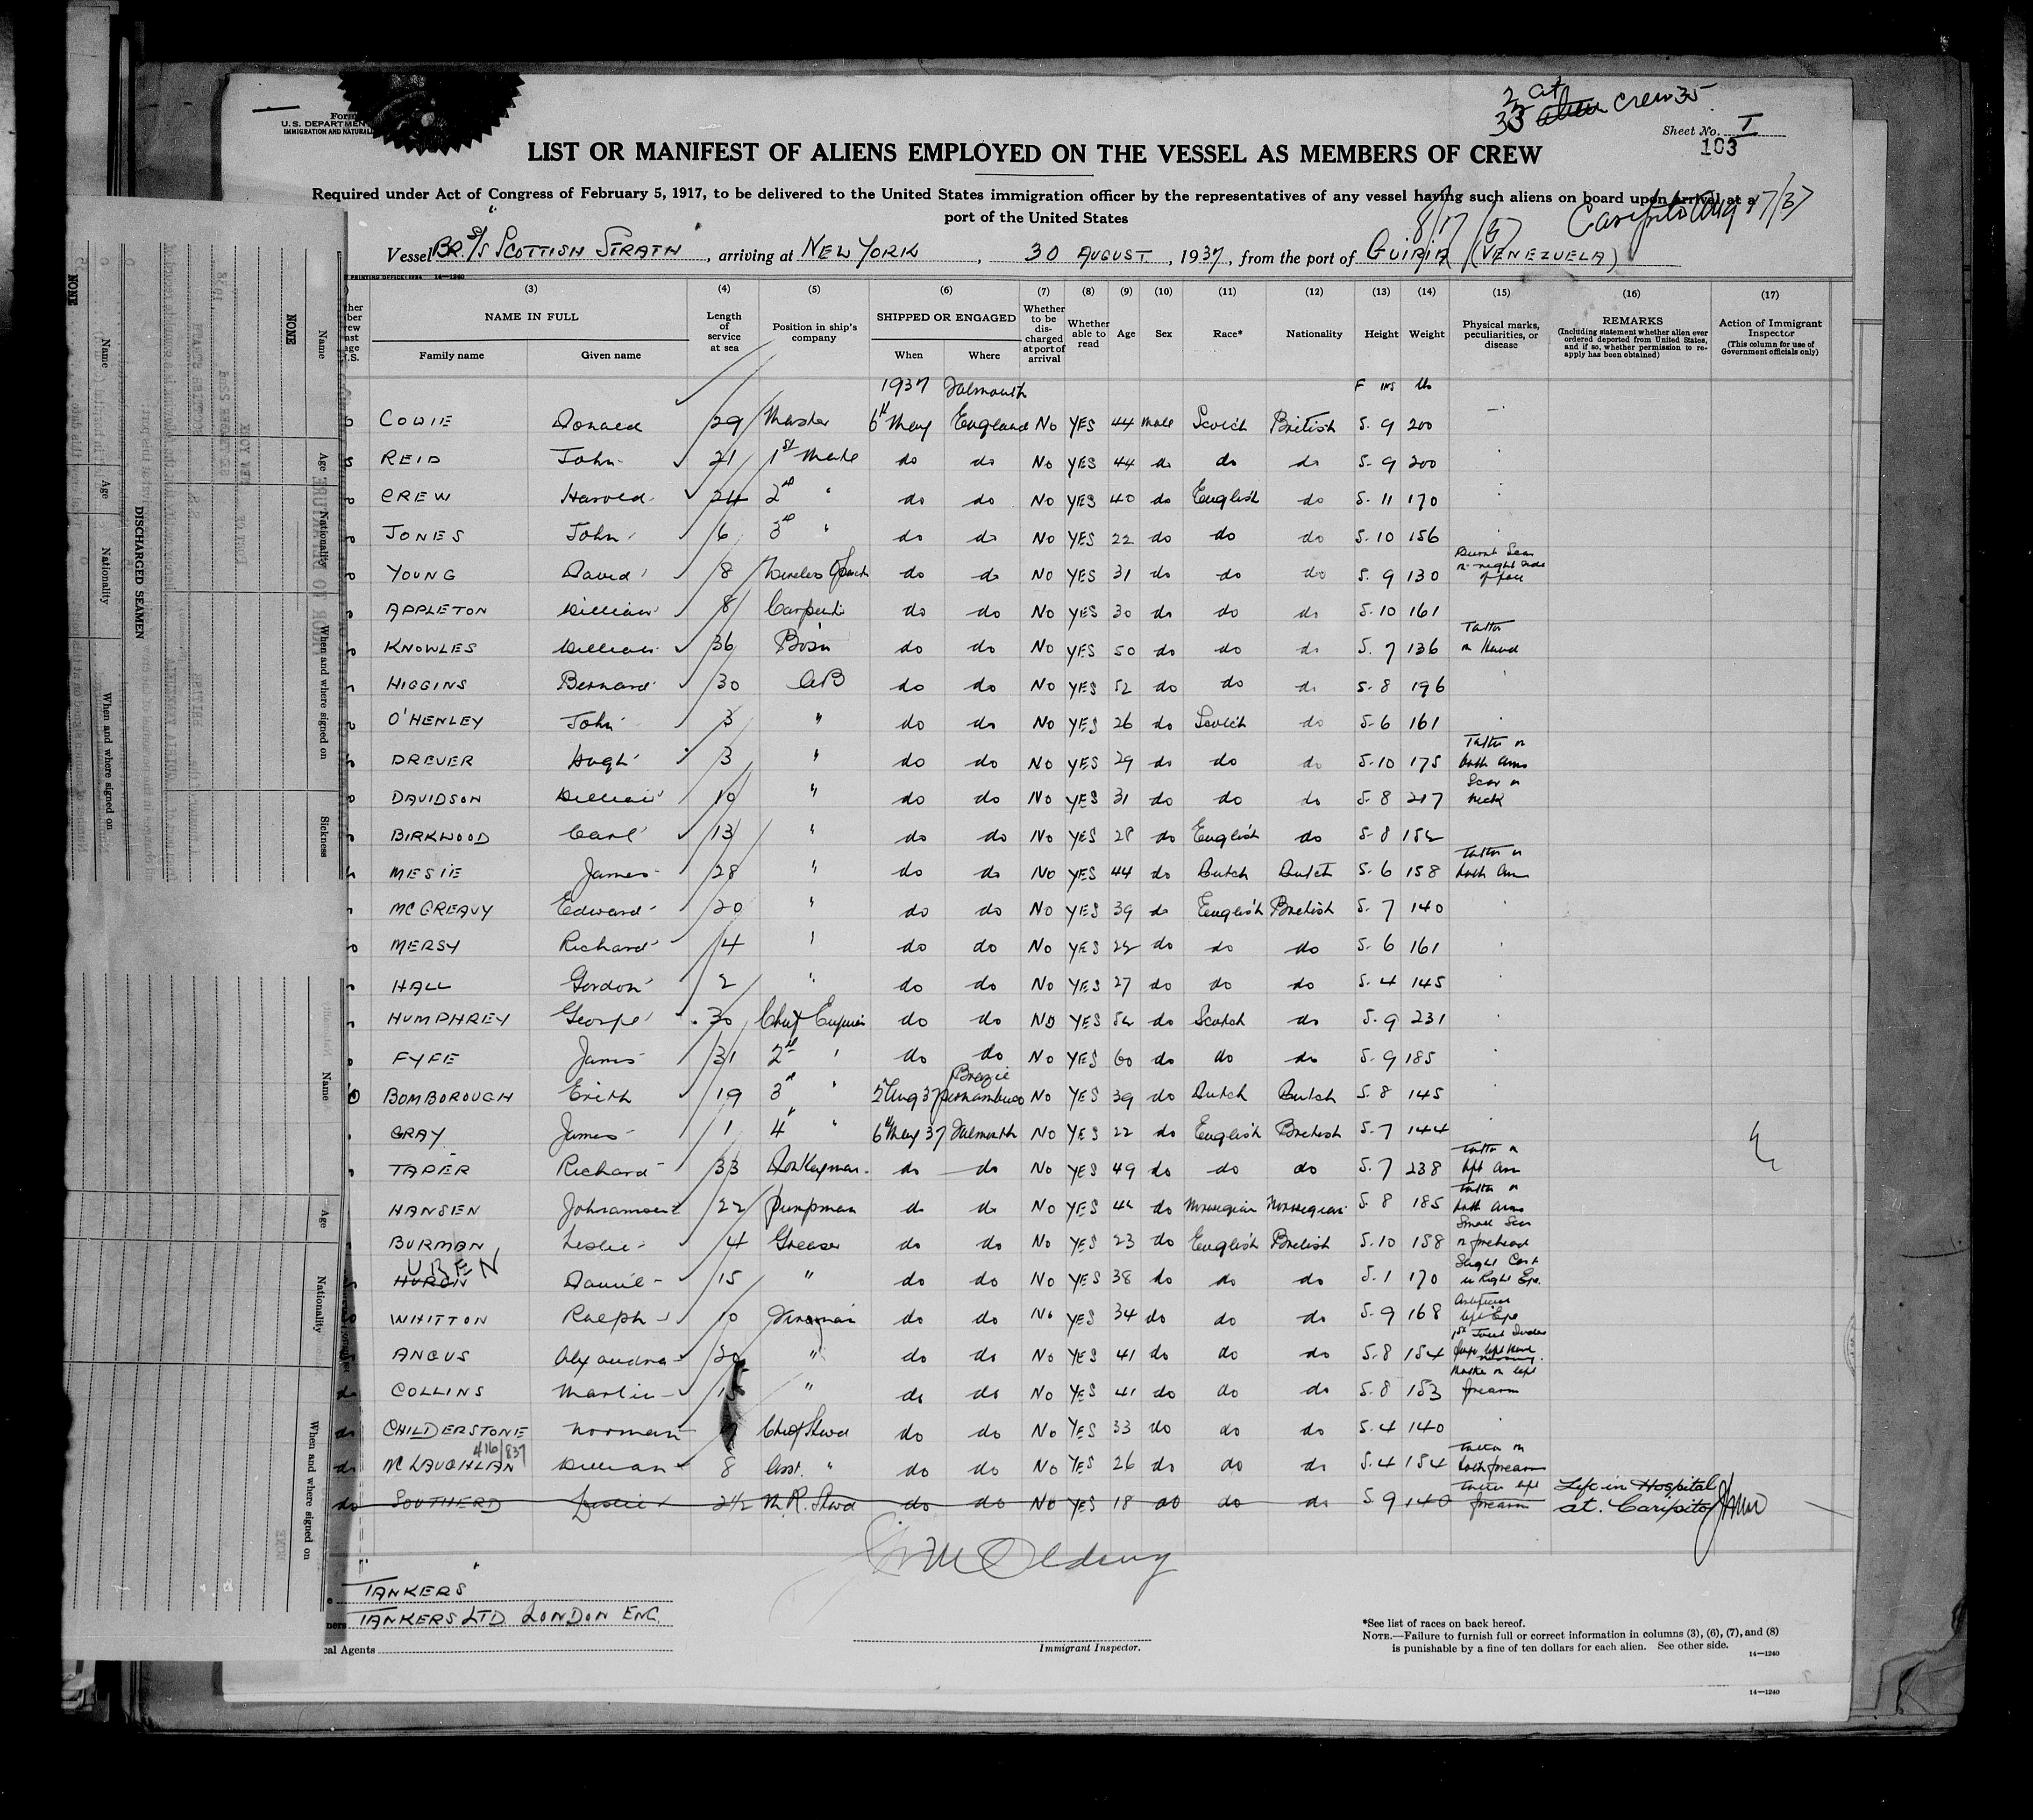 2 at
33 alien crew 35
Form
U.S. DEPARTMENT
IMMIGRATION AND NATURALI
Sheet No. I
103
LIST OR MANIFEST OF ALIENS EMPLOYED ON THE VESSEL AS MEMBERS OF CREW
Required under Act of Congress of February 5, 1917, to be delivered to the United States immigration officer by the representatives of any vessel having such aliens on board upon arrival at a
port of the United States
Caripito Aug 17/37
Vessel BR. S/S "SCOTTISH STRATH", arriving at NEW YORK, 30 AUGUST, 1937, from the port of GUIRIA (VENEZUELA)
(3) (4) (5) (6) (7) (8) (9) (10) (11) (12) (13) (14) (15) (16) (17)
NAME IN FULL
Family name Given name
Length of service at sea
Position in ship's company
SHIPPED OR ENGAGED
When Where
Whether to be discharged at port of arrival
Whether able to read
Age
Sex
Race*
Nationality
Height
Weight
Physical marks, peculiarities, or disease
REMARKS
(Including statement whether alien ever ordered deported from United States, and if so, whether permission to reapply has been obtained)
Action of Immigrant Inspector
(This column for use of Government officials only)
1937 Falmouth F ins lb
COWIE Donald 29 Master 6th May England No YES 44 male Scotch British 5. 9 200
REID John 21 1st Mate do do No YES 44 do do do 5. 9 200
CREW Harold 24 2nd " do do No YES 40 do English do 5. 11 170
JONES John 6 3rd " do do No YES 22 do do do 5. 10 156
YOUNG David 8 Wireless do do No YES 31 do do do 5. 9 130 Burnt Scar on right side of face
APPLETON William 8 Carpenter do do No YES 30 do do do 5. 10 161
KNOWLES William 36 Bosn do do No YES 50 do do do 5. 7 136 Tattoo on Hand
HIGGINS Bernard 30 AB do do No YES 52 do do do 5. 8 196
O'HENLEY John 3 " do do No YES 26 do Scotch do 5. 6 161
DREVER Hugh 3 " do do No YES 29 do do do 5. 10 175 Tattoo on both arms
DAVIDSON William 10 " do do No YES 31 do do do 5. 8 217 Scar on neck
BIRKWOOD Carl 13 " do do No YES 28 do English do 5. 8 152
MESIE James 28 " do do No YES 44 do Dutch Dutch 5. 6 158 Tattoo on both arms
MCGREAVY Edward 20 " do do No YES 39 do English British 5. 7 140
MERSY Richard 4 " do do No YES 22 do do do 5. 6 161
HALL Gordon 2 " do do No YES 27 do do do 5. 4 145
HUMPHREY George 30 Chief Engineer do do No YES 52 do Scotch do 5. 9 231
FYFE James 31 2nd " do do No YES 60 do do do 5. 9 185
BOMBOROUGH Erith 19 3rd " 5 Aug 37 Brazil Pernambuco No YES 39 do Dutch Dutch 5. 8 145
GRAY James 1 4th " 6th May 37 Falmouth No YES 22 do English British 5. 7 144
TAPER Richard 33 Donkeyman do do No YES 49 do do do 5. 7 238 Tattoo on left arm
HANSEN 22 Pumpman do do No YES 42 do Norwegian Norwegian 5. 8 185 Tattoo on both arms
BURMAN Leslie 4 Greaser do do No YES 23 do English British 5. 10 158 Small Scar on forehead
UREN
HUREN Daniel 15 " do do No YES 38 do do do 5. 1 170 Slight Cast in Right Eye
WHITTON Ralph 10 Fireman do do No YES 34 do do do 5. 9 168 Artificial left Eye
ANGUS Alexandra 20 " do do No YES 41 do do do 5. 8 154 1st Joint Index finger left hand missing
COLLINS Martin 15 " do do No YES 41 do do do 5. 8 153 on left forearm
CHILDERSTONE Norman Chief Stwd do do No YES 33 do do do 5. 4 140
416/837
MCLAUGHLAN William 8 Asst. " do do No YES 26 do do do 5. 4 154 Tattoo on both forearms
SOUTHERD Leslie 2½ M.R. Stwd do do No YES 18 do do do 5. 9 140 Tattoo left forearm Left in Hospital at. Caripito
TANKERS
TANKERS LTD LONDON ENG.
cal Agents
Immigrant Inspector.
*See list of races on back hereof.
NOTE.—Failure to furnish full or correct information in columns (3), (6), (7), and (8)
is punishable by a fine of ten dollars for each alien. See other side.
14—1240
14—1240
NONE
DISCHARGED SEAMEN
Name
Age
Nationality
When and where signed on
Sickness
Name
Age
Nationality
When and where signed on